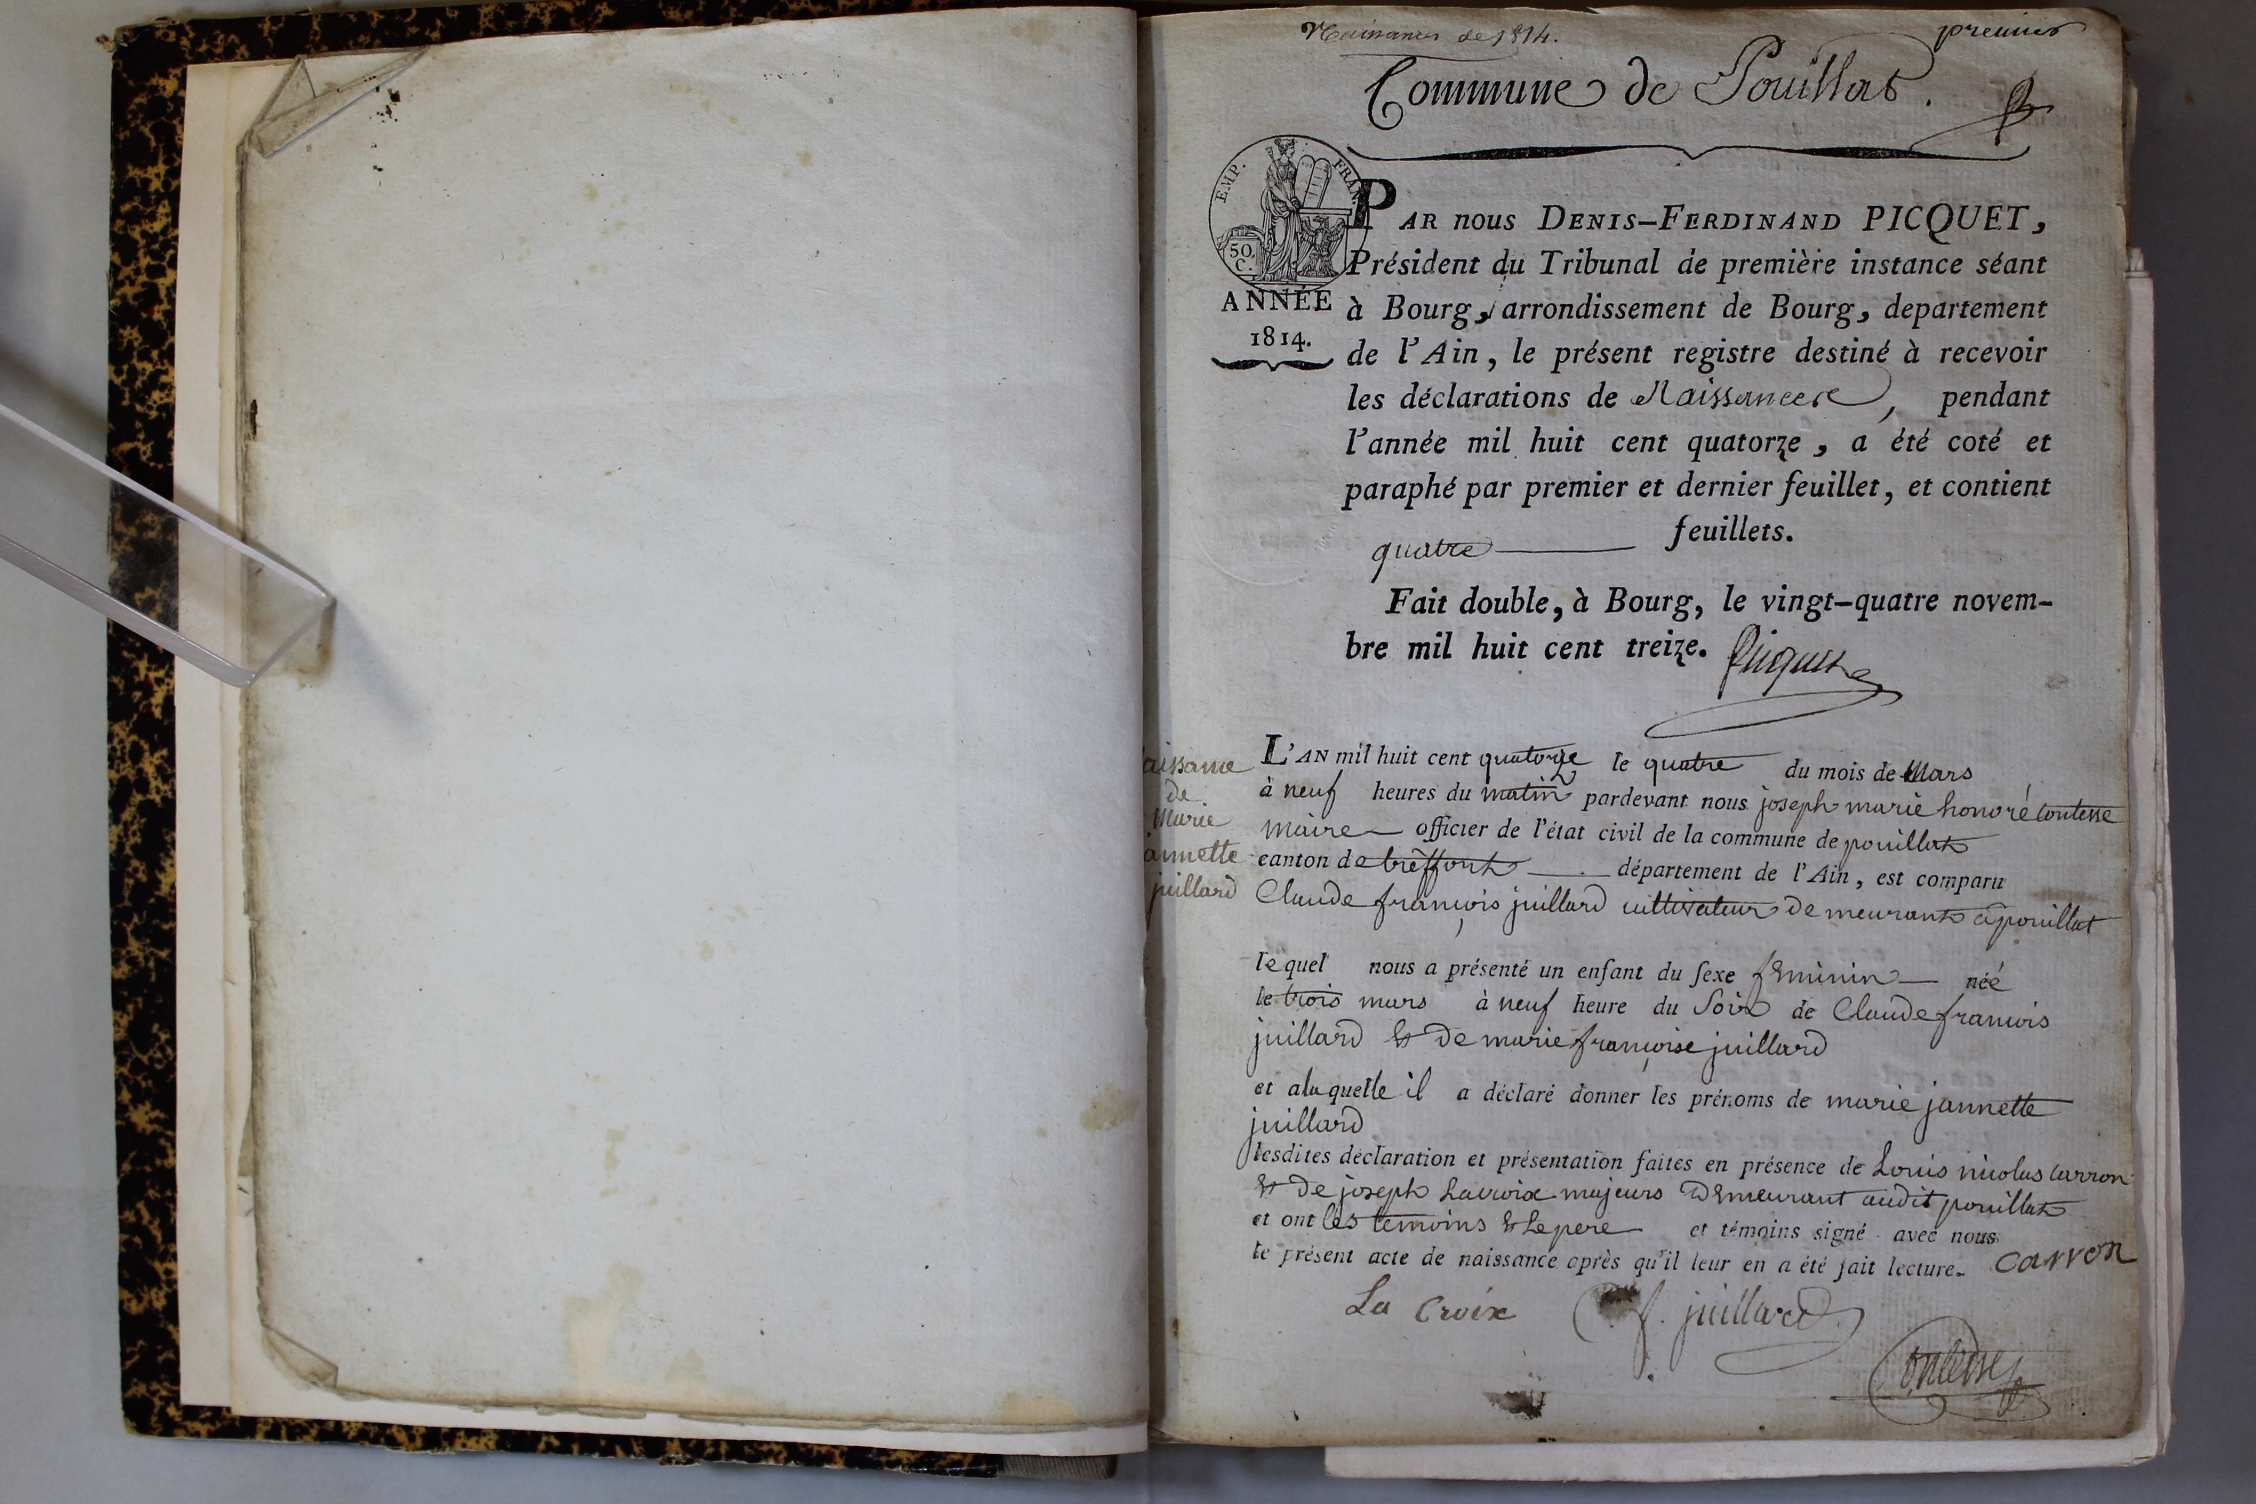 Naissances de 1814.
premier
Commune de Pouillat.
EMP. FRAN.
50 C.
ANNÉE
1814.
PAR nous DENIS-FERDINAND PICQUET,
Président du Tribunal de première instance séant
à Bourg, arrondissement de Bourg, departement
de l'Ain, le présent registre destiné à recevoir
les déclarations de Naissances, pendant
l'année mil huit cent quatorze, a été coté et
paraphé par premier et dernier feuillet, et contient
quatre feuillets.
Fait double, à Bourg, le vingt-quatre novem-
bre mil huit cent treize. Picquet
aissance
de
Marie
jannette
juillard
L'AN mil huit cent quatorze le quatre du mois de Mars
à neuf heures du matin pardevant nous joseph marie honoré Contesse
Maire officier de l'état civil de la commune de pouillat
canton de trèffort département de l'Ain, est comparu
Claude françois juillard cultivateur demeurant à pouillat
lequel nous a présenté un enfant du sexe féminin néé
le trois mars à neuf heure du Soir de Claude francois
juillard & de marie françoise juillard
et alaquelle il a déclaré donner les prénoms de marie jannette
juillard
lesdites déclaration et présentation faites en présence de Louis nicolas carron
& de joseph Lacroix majeurs Demeurant audit pouillat
et ont les temoins & Le pere et témoins signé avec nous
le présent acte de naissance après qu'il leur en a été fait lecture. carron
La Croix C. f. juillard.
Contesse